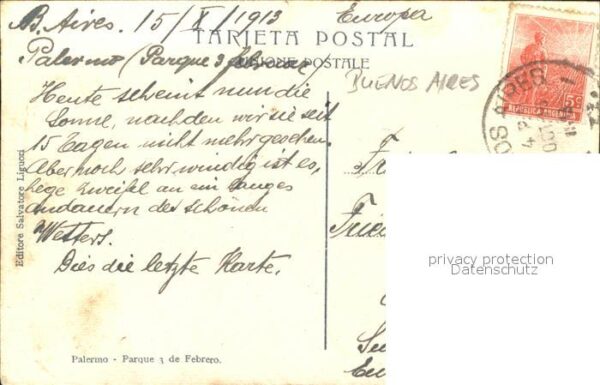 B. Aires. 15/X/1913
Europa
TARJETA POSTAL
UNIONE POSTALE
Palermo (Parque 3 Febrero)
BUENOS AIRES
Heute scheint nun die
Sonne, nachdem wir sie seit
15 Tagen nicht mehr gesehen.
Aber noch sehr windig ist es,
hege Zweifel an ein langes
andauern des schönen
Wetters.
Dies die letzte Karte.
Editore Salvatore Ligucci
Palermo - Parque 3 de Febrero.
5c
REPUBLICA ARGENTINA
OS AIRES
privacy protection
Datenschutz